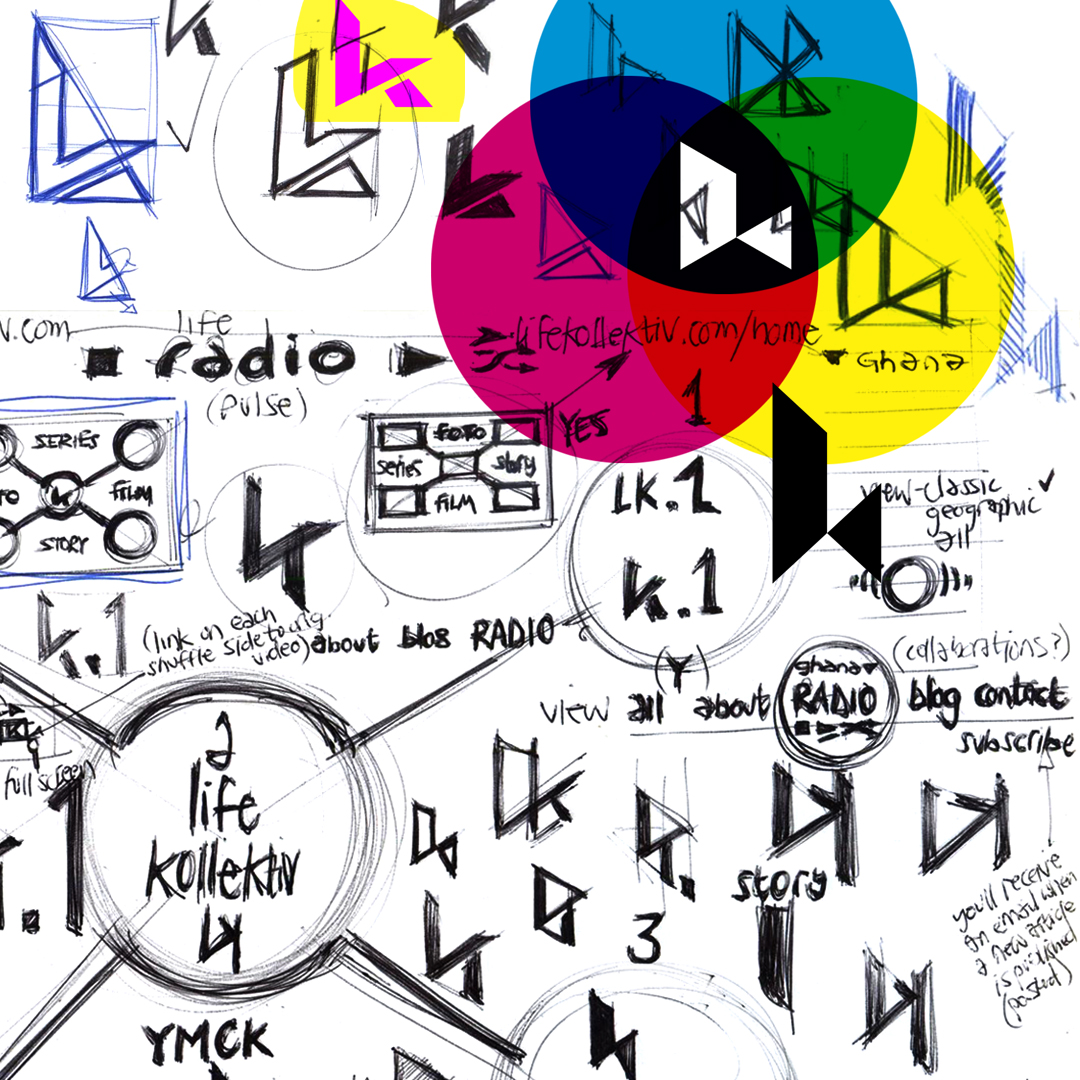 v.com
life
radio
(pulse)
lifekollektiv.com/home
Ghana
1
YES
SERIES
FILM
STORY
foto
series story
FILM
LK.1
K.1
view-classic
geographic
all
K.1
(link on each
shuffle side to
video)
about blog RADIO
(Y)
(collaborations?)
ghana
view all about RADIO blog contact
subscribe
full screen
a
life
kollektiv
story
3
you'll receive
an email when
a new article
is published
(posted)
YMCK